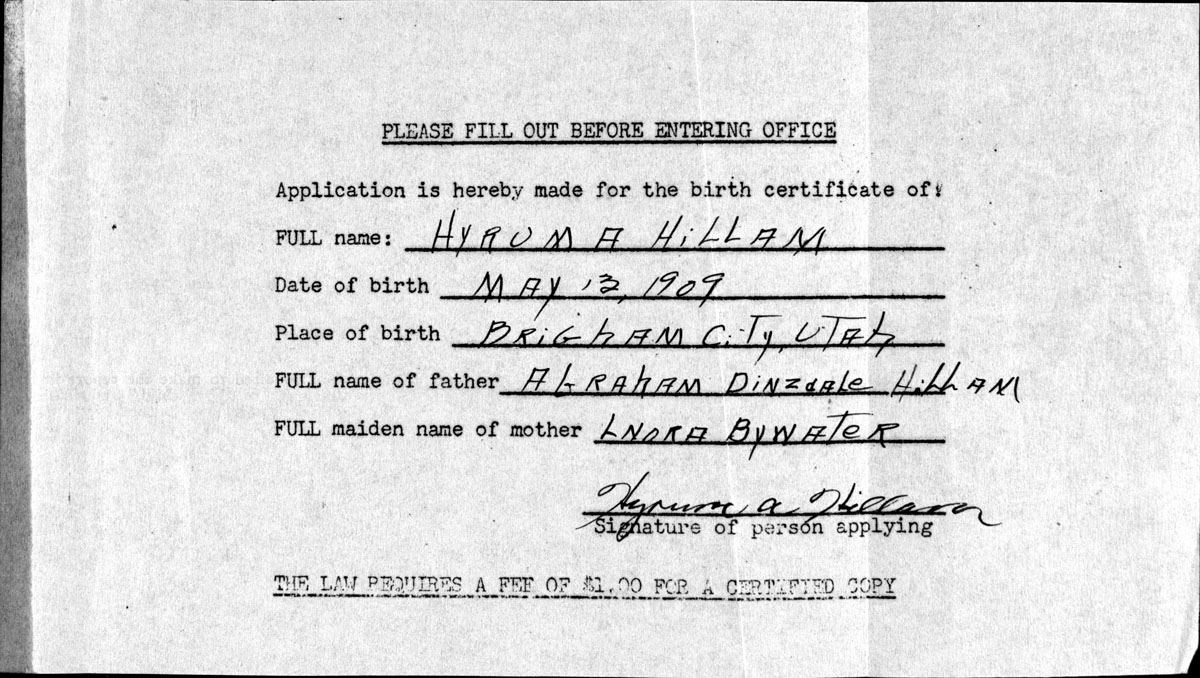 PLEASE FILL OUT BEFORE ENTERING OFFICE
Application is hereby made for the birth certificate of:
FULL name: HYRUM A HILLAM
Date of birth MAY 13, 1909
Place of birth BRIGHAM CITY, UTAH
FULL name of father ABRAHAM DINZDALE HILLAM
FULL maiden name of mother LNORA BYWATER
Hyrum A Hillam
Signature of person applying
THE LAW REQUIRES A FEE OF $1.00 FOR A CERTIFIED COPY